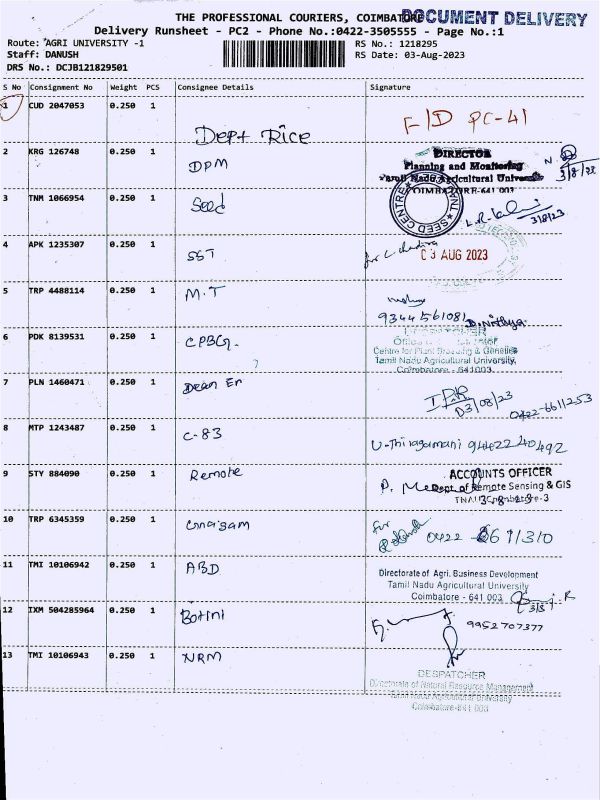 THE PROFESSIONAL COURIERS, COIMBATORE
DOCUMENT DELIVERY
Delivery Runsheet - PC2 - Phone No.:0422-3505555 - Page No.:1
Route: AGRI UNIVERSITY -1
RS No.: 1218295
Staff: DANUSH
RS Date: 03-Aug-2023
DRS No.: DCJB121829501
S No Consignment No Weight PCS Consignee Details Signature
1 CUD 2047053 0.250 1 Dept Rice F/D PC-41
2 KRG 126748 0.250 1 DPM
DIRECTOR
Planning and Monitoring
Tamil Nadu Agricultural University
COIMBATORE-641 003
3/8/23
3 TNM 1066954 0.250 1 Seed
SEED CENTRE
3/8/23
4 APK 1235307 0.250 1 SST
03 AUG 2023
5 TRP 4488114 0.250 1 M.T
9344561081 D.Nithya
6 PDK 8139531 0.250 1 CPBG
Centre for Plant Breeding & Genetics
Tamil Nadu Agricultural University,
Coimbatore - 641003
7 PLN 1460471 0.250 1 Dean Er
03/08/23 0422-6611253
8 MTP 1243487 0.250 1 C-83 U-Thiragamani 9442240492
9 STY 884090 0.250 1 Remote
ACCOUNTS OFFICER
Dept. of Remote Sensing & GIS
TNAU Coimbatore-3
3-8-23
10 TRP 6345359 0.250 1 for 0422
11 TMI 10106942 0.250 1 ABD
Directorate of Agri. Business Development
Tamil Nadu Agricultural University
Coimbatore - 641 003
3/8
12 IXM 504285964 0.250 1 Botini 9952707377
13 TMI 10106943 0.250 1 NRM
DESPATCHER
Directorate of Natural Resource Management
Tamil Nadu Agricultural University
Coimbatore-641 003